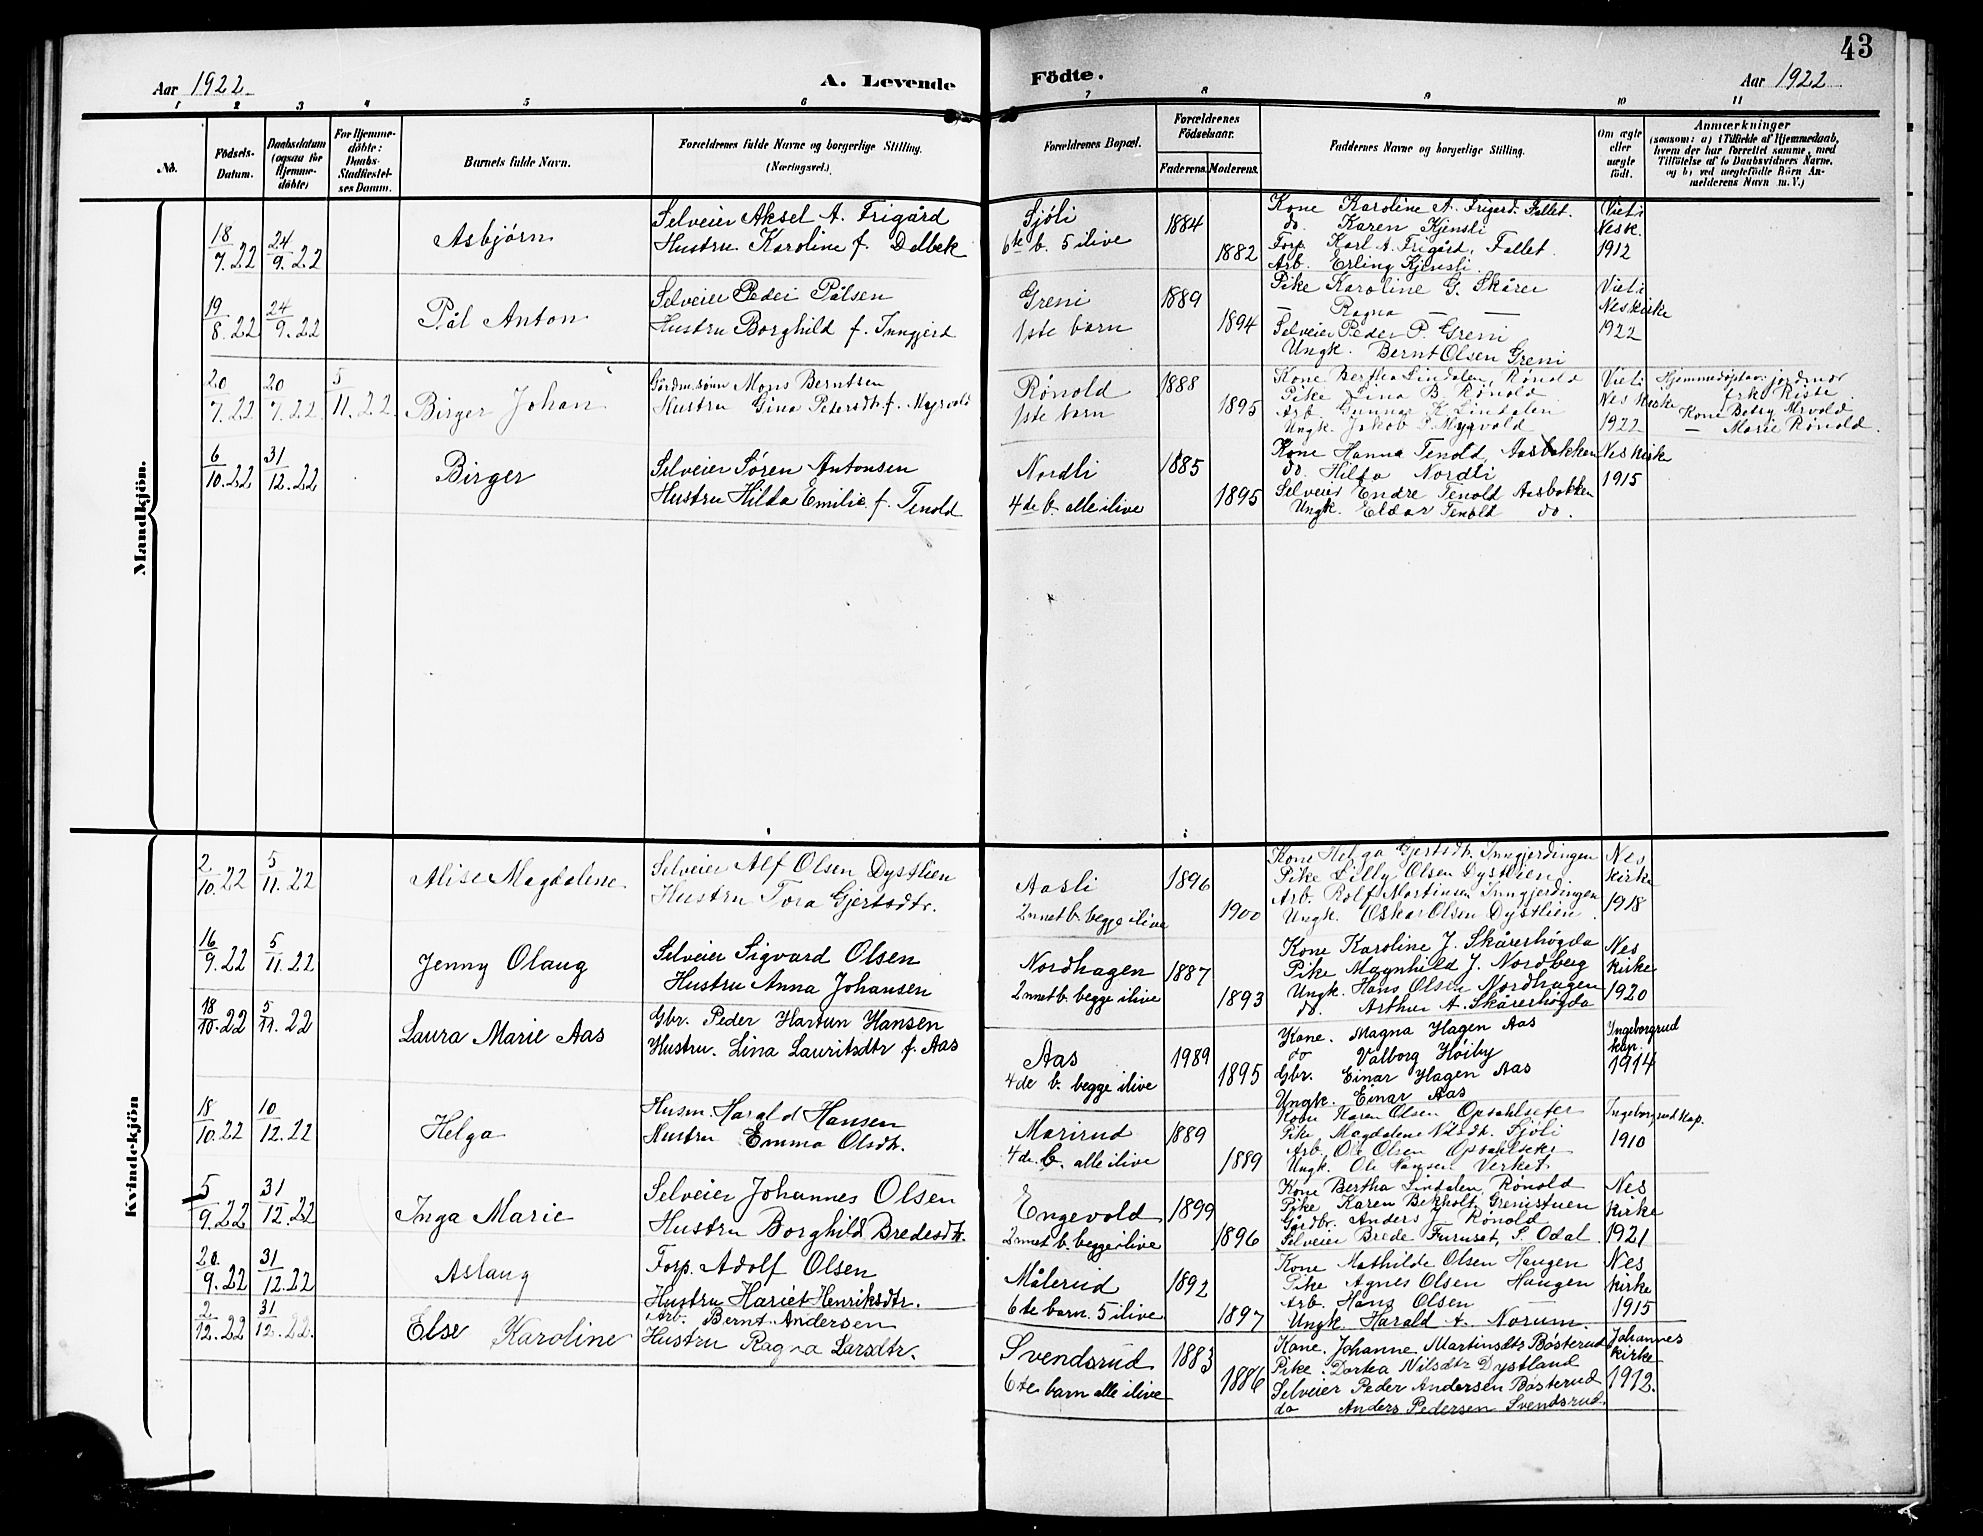 43
Aar 1922
A. Levende
Födte.
Aar 1922
1 2 3 4 5 6 7 8 9 10 11
No.
Födsels-
Datum.
Daabsdatum
(ogsaa for
Hjemme-
döbte)
For Hjemme-
döbte:
Daabs-
Stadfæstel-
ses Datum.
Barnets fulde Navn.
Forældrenes fulde Navne og borgerlige Stilling.
(Næringsvei.)
Forældrenes Bopæl.
Forældrenes
Födselsaar.
Faderens.
Moderens.
Faddernes Navne og borgerlige Stilling.
Om ægte
eller
uægte
födt.
Anmærkninger
(saasom: a) i Tilfælde af Hjemmedaab,
hvem der har forrettet samme, med
Tilföielse af to Daabsvidners Navne.
og b) ved uægtefödte Börn An-
melderens Navn m. V.)
Mandkjön.
18/7.22 24/9.22 Asbjørn
Selveier Aksel A. Frigård
Hustru Karoline f. Dalbek
Sjøli
6te b. 5 ilive
1884
1882
Kone Karoline A. Frigård. Fallet.
do. Karen Kjensli
Forp. Karl A. Frigård, Fallet.
Arb. Erling Kjensli.
Viet i
Nesk.
1912
19/8.22 24/9.22 Pål Anton
Selveier Peder Pålsen
Hustru Borghild f. Inngjerd
Greni
1ste barn
1889
1894
Pike Karoline G. Skårer
— Ragna — —
Selveier Peder P. Greni
Ungk. Bernt Olsen Greni
Viet i
Nes kirke
1922
20/7.22 20/7.22 5/11.22 Birger Johan
Gårdm.sønn Mons Berntsen
Hustru Gina Petersdtr f. Myrvold
Rønold
1ste barn
1888
1895
Kone Bertha Lindalen, Rønold
Pike Lina B. Rønold
Arb. Gunnar K. Lindalen
Ungk. Jakob P. Myrvold
Viet i
Nes kirke
1922
Hjemmedøpt av jordmor
frk. Riste.
Kone Betsy Myvold
— Marie Rønold.
6/10.22 31/12.22 Birger
Selveier Søren Antonsen
Hustru Hilda Emilie f. Tenold
Nordli
4de b. alle ilive
1885
1895
Kone Hanna Tenold Aasbakken
do. Hilda Nordli
Selveier Endre Tenold Aasbakken
Ungk. Eldar Tenold do.
Nes kirke
1915
Kvindekjön
2/10.22 5/11.22 Alise Magdalene
Selveier Alf Olsen Dystlien
Hustru Tora Gjertsdtr.
Aasli
2nnet b. begge ilive
1896
1900
Kone Helga Gjertsdtr. Inngjerdingen
Pike Lilly Olsen Dystlien
Arb. Rolf Martinsen Inngjerdingen
Ungk. Oskar Olsen Dystlien.
Nes
kirke
1918
16/9.22 5/11.22 Jenny Olaug
Selveier Sigvard Olsen
Hustru Anna Johansen
Nordhagen
2nnet b. begge ilive
1887
1893
Kone Karoline J. Skårershøgda
Pike Magnhild J. Nordberg
Ungk. Hans Olsen Nordhagen
do. Arthur A. Skårershøgda
Nes
kirke
1920
18/10.22 5/11.22 Laura Marie Aas
Gbr. Peder Hartun Hansen
Hustru. Lina Lauritsdtr f. Aas
Aas
4de b. begge ilive
1989
1895
Kone. Magna Hagen Aas
do Valborg Høiby
Gbr. Einar Hagen Aas
Ungk. Einar Aas
Ingeborgrud
kap.
1914
18/10.22 10/12.22 Helga
Husm. Harald Hansen
Hustru Emma Olsdtr.
Marirud
4de b. alle ilive
1889
1889
Kone Karen Olsen Opsahlseter
Pike Magdalene Nilsdtr. Sjøli
Arb. Ole Olsen Opsahlseter
Ungk. Ole Hansen Verket
Ingeborgrud kap.
1910
5/9.22 31/12.22 Inga Marie
Selveier Johannes Olsen
Hustru Borghild Bredesdtr.
Engevold
2nnet b. begge ilive
1899
1896
Kone Bertha Lindalen, Rønold
Pike Karen Bekholt, Grenistuen
Gårdbr. Anders J. Rønold
Selveier Brede Furuset, S. Odal.
Nes
kirke
1921
20/9.22 31/12.22 Aslaug
Forp. Adolf Olsen
Hustru Hariet Henriksdtr.
Målerud
6te barn. 5 ilive
1892
1897
Kone Mathilde Olsen Haugen
Pike Agnes Olsen Haugen
Arb. Hans Olsen
Ungk. Harald A. Norum.
Nes
kirke
1915
2/12.22 31/12.22. Else Karoline
Arb. Bernt Andersen
Hustru Ragna Larsdtr.
Svendsrud
6te barn alle ilive
1883
1886
Kone. Johanne Martinsdtr Bøsterud
Pike. Dortea Nilsdtr Dystland
Selveier Peder Andersen Bøsterud
do Anders Pedersen Svendsrud.
Johannes
kirke
1912.